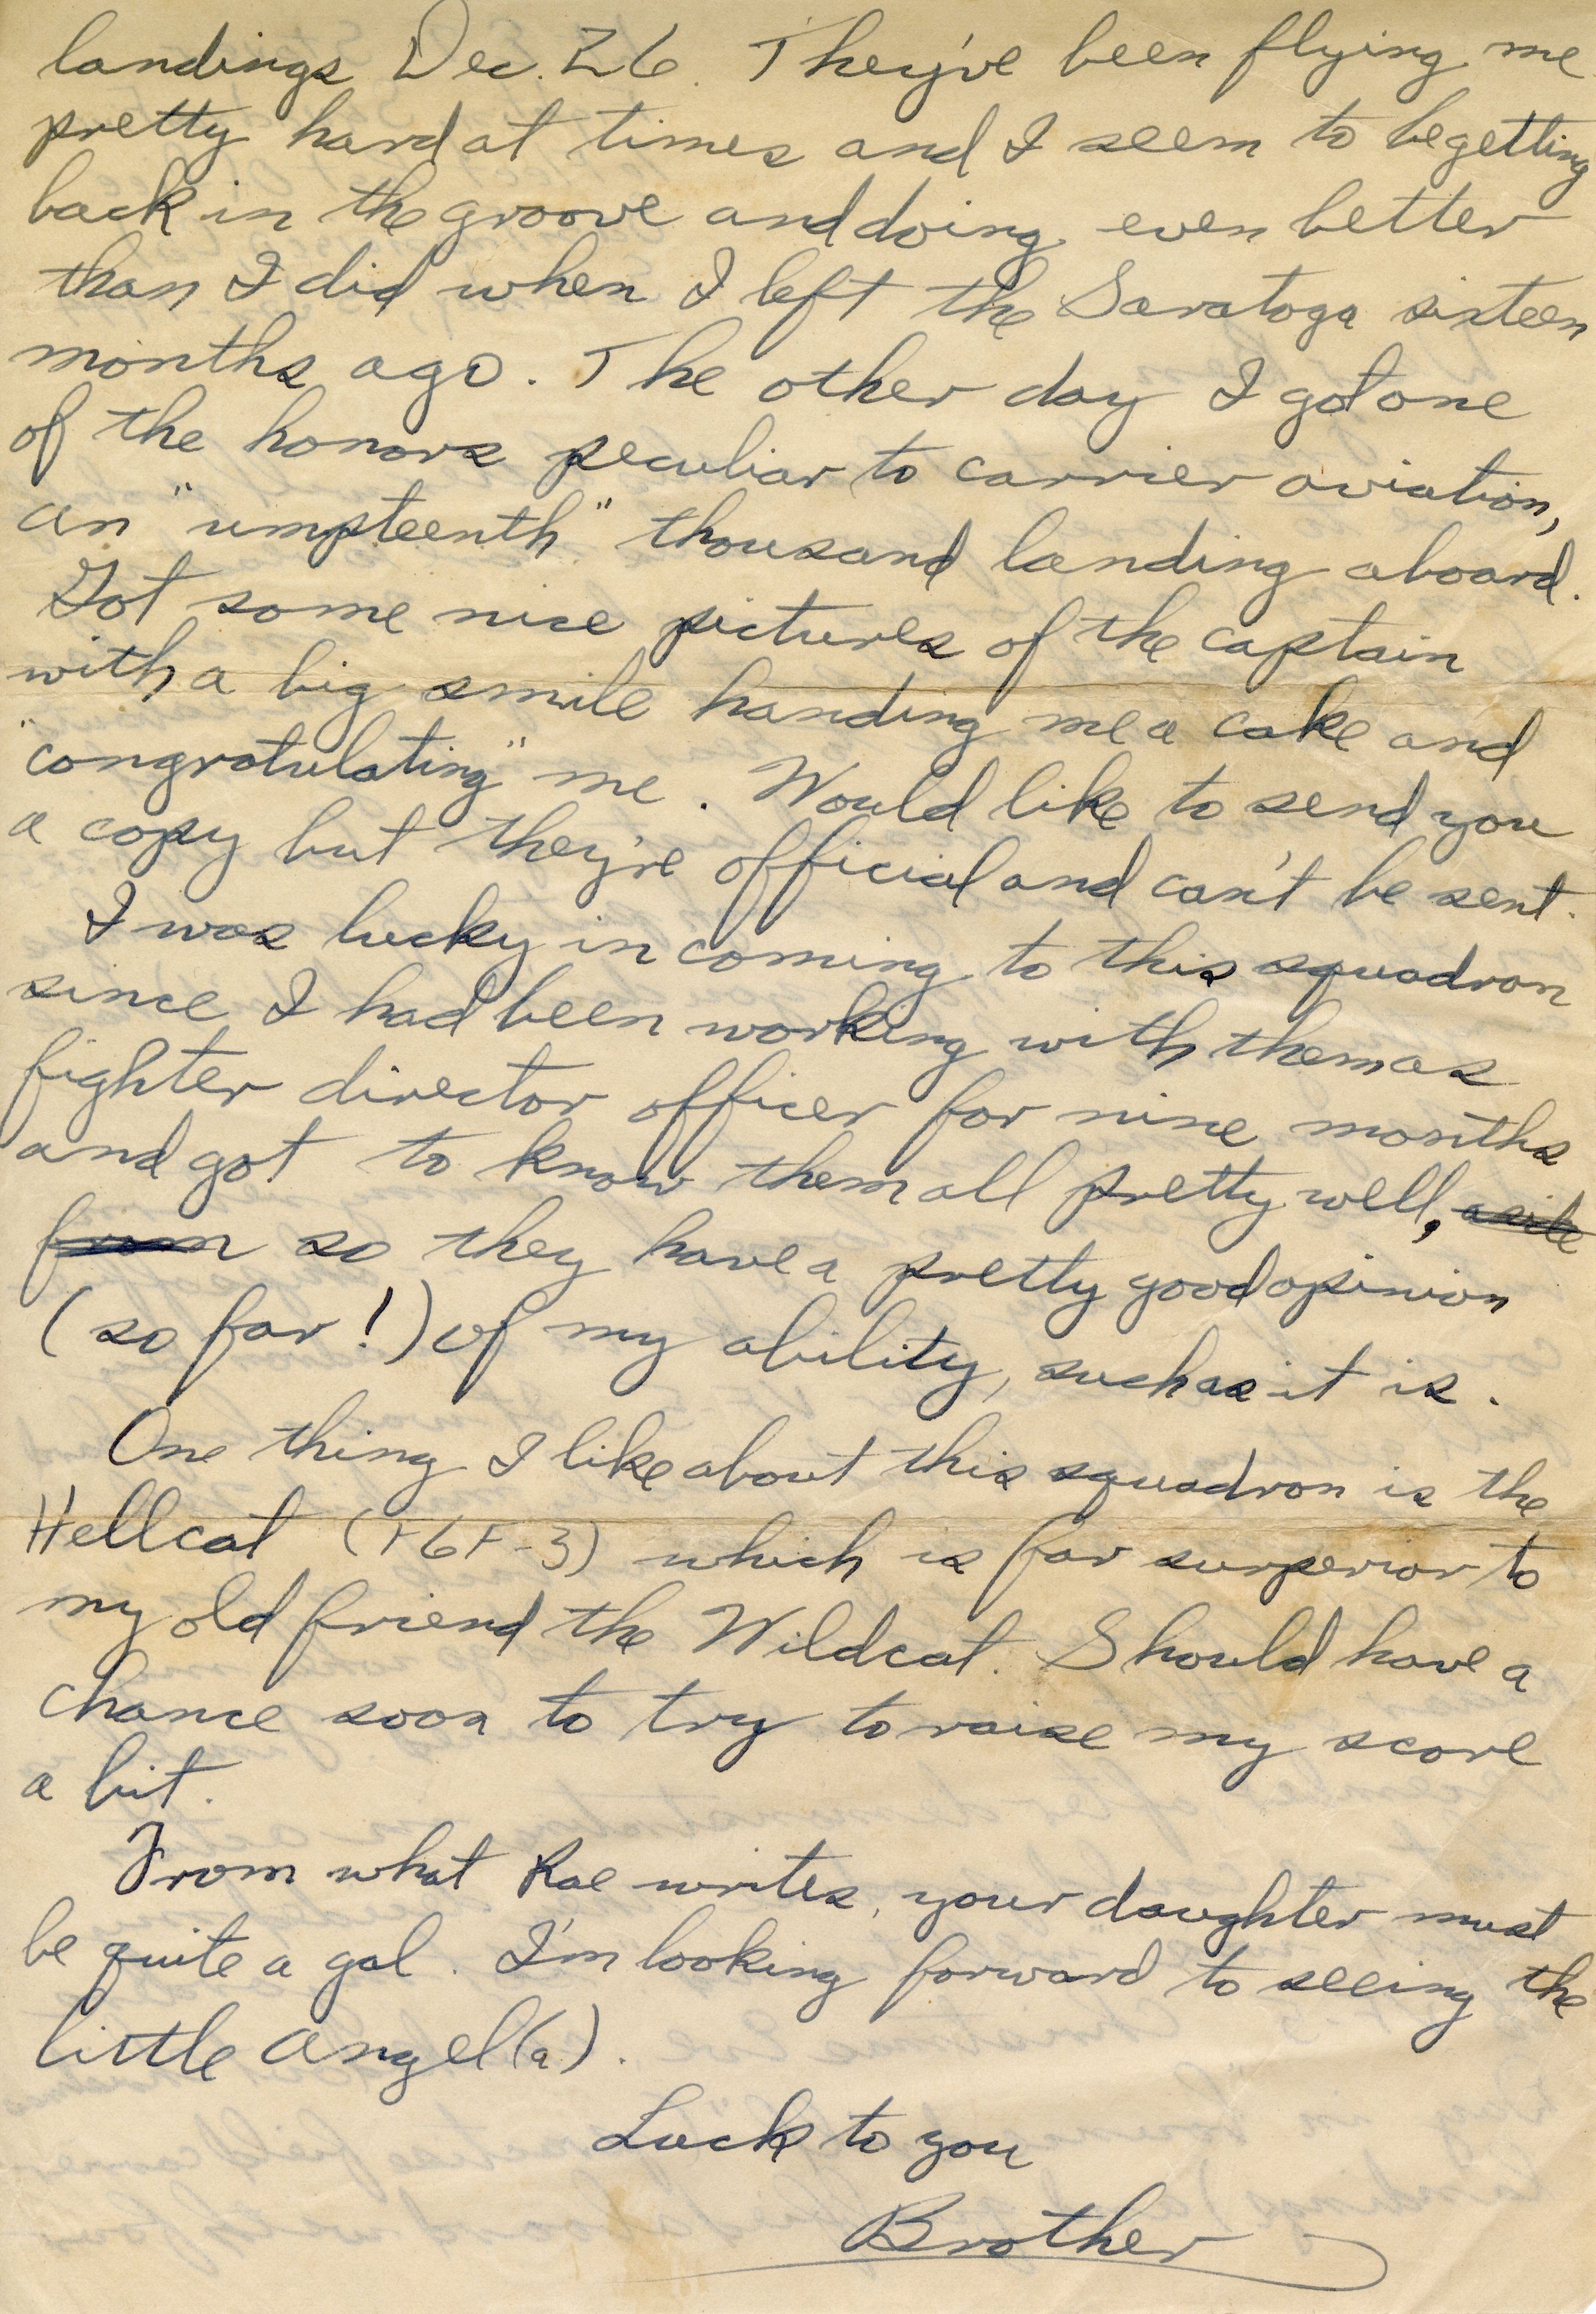 landings Dec. 26. They've been flying me
pretty hard at times and I seem to be getting
back in the groove and doing even better
than I did when I left the Saratoga sixteen
months ago. The other day I got one
of the honors peculiar to carrier aviation,
an "umpteenth" thousand landing aboard.
Got some nice pictures of the captain
with a big smile handing me a cake and
"congratulating" me. Would like to send you
a copy but they're official and can't be sent.
I was lucky in coming to this squadron
since I had been working with them as
fighter director officer for nine months
and got to know them all pretty well, aside
from so they have a pretty good opinion
(so far!) of my ability, such as it is.
One thing I like about this squadron is the
Hellcat (F6F-3) which is far surperior to
my old friend the Wildcat. Should have a
chance soon to try to raise my score
a bit.
From what Rae writes, your daughter must
be quite a gal. I'm looking forward to seeing the
little angel(a).
Luck to you
Brother